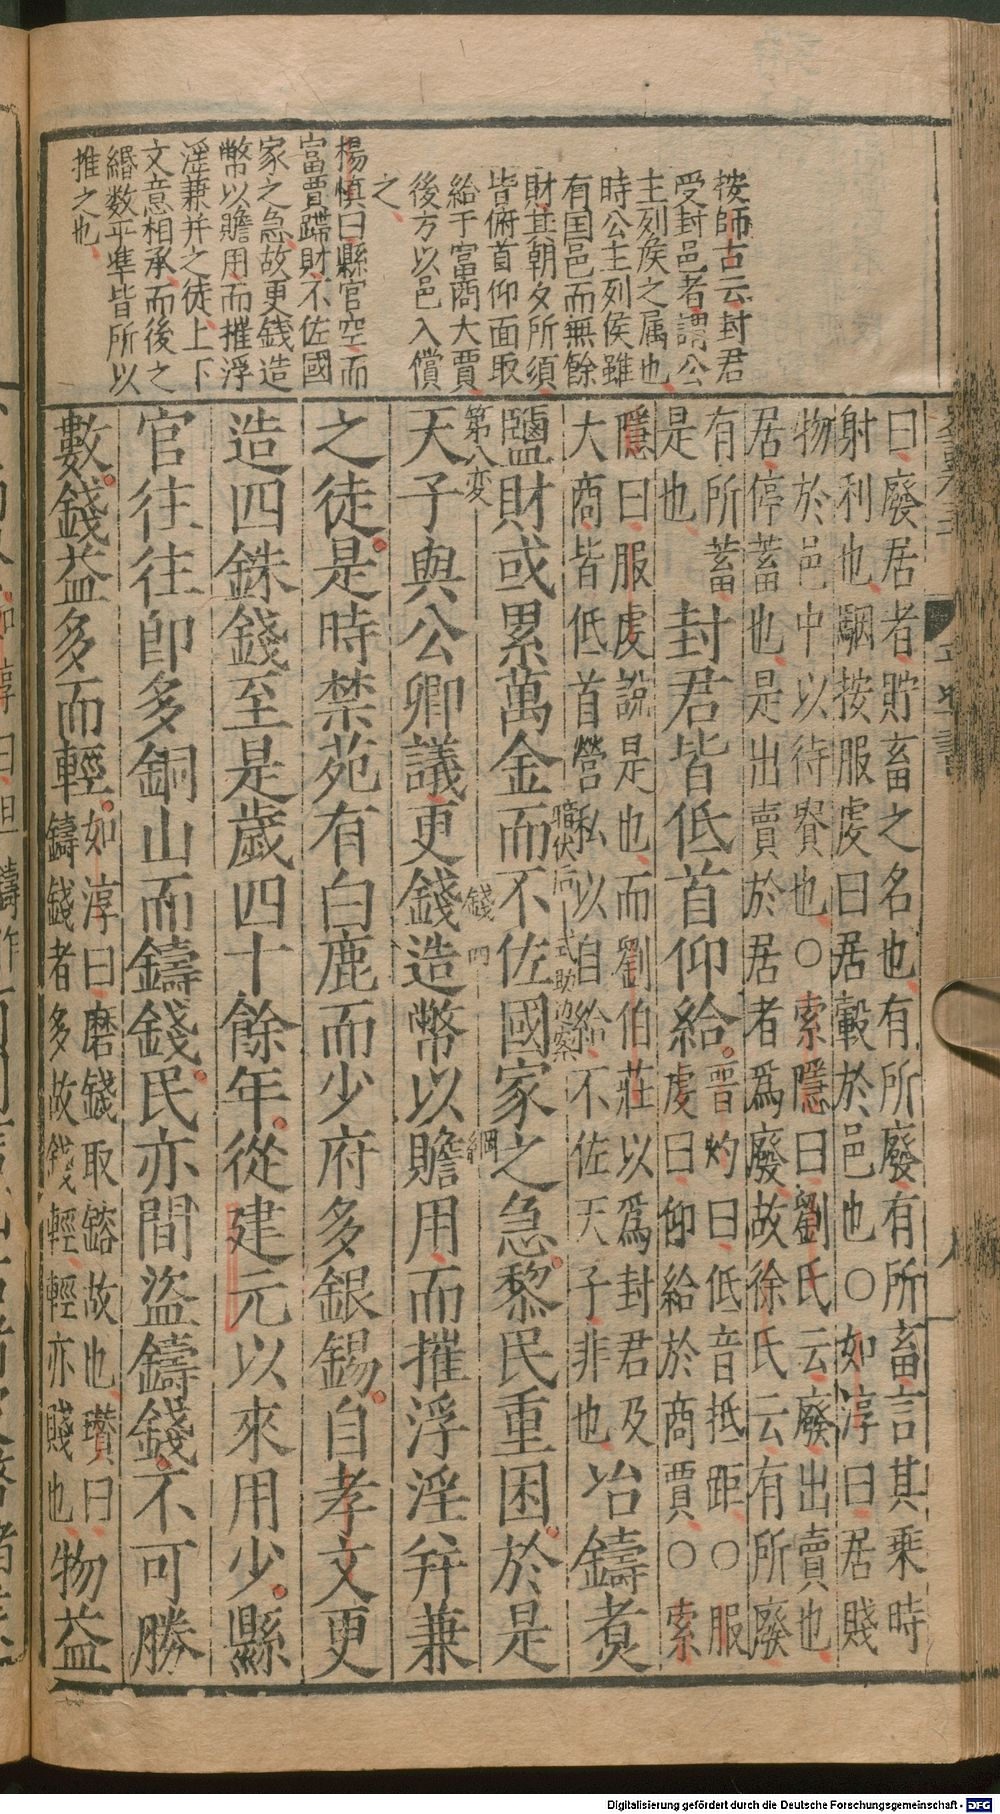 按師古云封君
受封邑者謂公
主列矦之属也
時公主列侯雖
有国邑而無餘
財其朝夕所須
皆俯首仰面取
給于富商大賈
後方以邑入償
之
楊慎曰縣官空而
富賈蹛財不佐國
家之急故更錢造
幣以贍用而摧浮
淫兼并之徒上下
文意相承而後之
緡数平準皆所以
推之也
曰廢居者貯畜之名也有所廢有所畜言其乗時
射利也駰按服虔曰居轂於邑也○如淳曰居賤
物於邑中以待貴也○索隱曰劉氏云廢出賣也
居停蓄也是出賣於居者爲廢故徐氏云有所廢
有所蓄
是也
封君皆低首仰給
晋灼曰低音抵距○服
虔曰仰給於商賈○索
隱曰服虔說是也而劉伯莊以爲封君及
大商皆低首營私以自給不佐天子非也
冶鑄煑
鹽財或累萬金而不佐國家之急黎民重困於是
第八変
天子與公卿議更錢造幣以贍用而摧浮淫并兼
錢四
之徒是時禁苑有白鹿而少府多銀錫自孝文更
造四銖錢至是歲四十餘年從建元以來用少縣
官往往卽多銅山而鑄錢民亦間盜鑄錢不可勝
數錢益多而輕
如淳曰磨錢取鎔故也瓉曰
鑄錢者多故錢輕輕亦賤也
物益
Digitalisierung gefördert durch die Deutsche Forschungsgemeinschaft - DFG